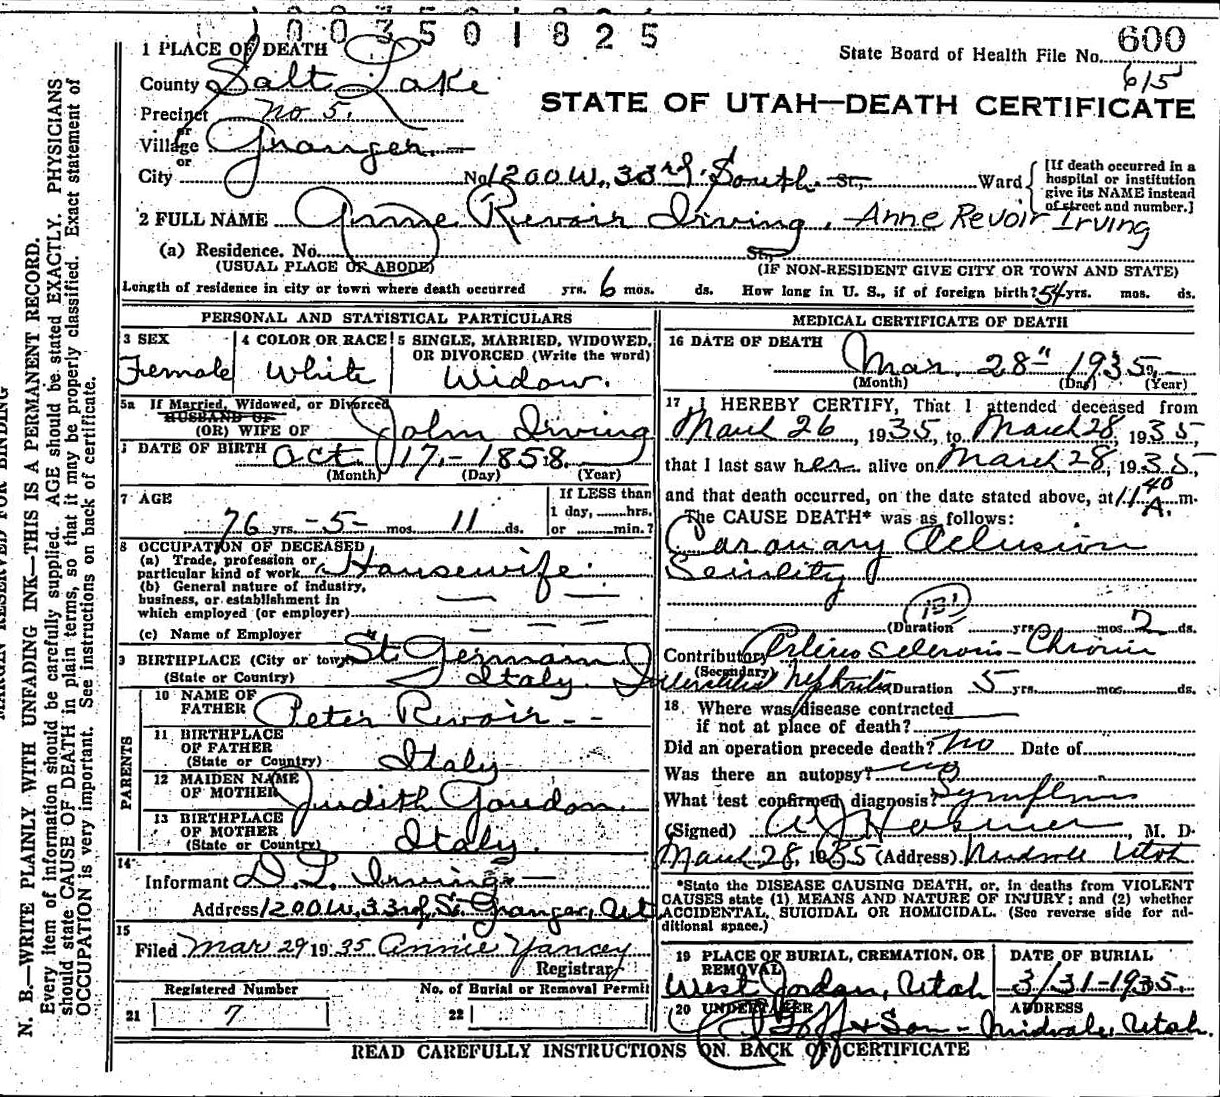 1 0 0 3 5 0 1 8 2 5
State Board of Health File No. 600
615
1 PLACE OF DEATH
County Salt Lake
STATE OF UTAH—DEATH CERTIFICATE
Precinct No 5.
or
Village Granger.
or
City No 1200 W., 33rd South St., Ward
[If death occurred in a hospital or institution give its NAME instead of street and number.]
2 FULL NAME Anne Revoir Irving, Anne Revoir Irving
(a) Residence. No. St.,
(USUAL PLACE OF ABODE) (IF NON-RESIDENT GIVE CITY OR TOWN AND STATE)
Length of residence in city or town where death occurred yrs. 6 mos. ds. How long in U. S., if of foreign birth? 54 yrs. mos. ds.
PERSONAL AND STATISTICAL PARTICULARS
3 SEX 4 COLOR OR RACE 5 SINGLE, MARRIED, WIDOWED,
OR DIVORCED (Write the word)
Female White Widow.
5a If Married, Widowed, or Divorced
HUSBAND OF
(OR) WIFE OF John Irving
DATE OF BIRTH Oct. 17,- 1858.
(Month) (Day) (Year)
7 AGE If LESS than
1 day, hrs.
76 yrs. -5- mos. 11 ds. or min.?
8 OCCUPATION OF DECEASED
(a) Trade, profession or
particular kind of work Housewife
(b) General nature of industry,
business, or establishment in
which employed (or employer)
(c) Name of Employer
9 BIRTHPLACE (City or town) St. Germain
(State or Country) Italy.
PARENTS
10 NAME OF
FATHER Peter Revoir
11 BIRTHPLACE
OF FATHER
(State or Country) Italy
12 MAIDEN NAME
OF MOTHER Judith Gaudon.
13 BIRTHPLACE
OF MOTHER
(State or Country) Italy.
14
Informant D. L. Irving
Address 1200 W, 33rd, So. Granger, Ut
15
Filed Mar 29 1935 Annie Yancey
Registrar
Registered Number No. of Burial or Removal Permit
21 7 22
MEDICAL CERTIFICATE OF DEATH
16 DATE OF DEATH
Mar. 28" 1935
(Month) (Day) (Year)
17 I HEREBY CERTIFY, That I attended deceased from
March 26, 1935, to March 28, 1935,
that I last saw her alive on March 28, 1935
and that death occurred, on the date stated above, at 11 40 A. m.
The CAUSE DEATH* was as follows:
Caronary Oclusion
Senility
(Duration yrs. mos. 2 ds.
Contributory Arterio Sclerosis - Chronic
(Secondary)
Interstitial Nephritis Duration 5 yrs. mos. ds.
18 Where was disease contracted
if not at place of death?
Did an operation precede death? No Date of
Was there an autopsy? no
What test confirmed diagnosis? Symptoms
(Signed) , M. D.
March 28, 1935 (Address) Midvale Utah
*State the DISEASE CAUSING DEATH, or, in deaths from VIOLENT
CAUSES state (1) MEANS AND NATURE OF INJURY; and (2) whether
ACCIDENTAL, SUICIDAL OR HOMICIDAL. (See reverse side for ad-
ditional space.)
19 PLACE OF BURIAL, CREMATION, OR DATE OF BURIAL
REMOVAL
West Jordan, Utah 3/31-1935.
20 UNDERTAKER ADDRESS
Goff & Son - Midvale, Utah.
READ CAREFULLY INSTRUCTIONS ON BACK OF CERTIFICATE
MARGIN RESERVED FOR BINDING
N. B.—WRITE PLAINLY WITH UNFADING INK—THIS IS A PERMANENT RECORD.
Every item of information should be carefully supplied. AGE should be stated EXACTLY. PHYSICIANS
should state CAUSE OF DEATH in plain terms, so that it may be properly classified. Exact statement of
OCCUPATION is very important. See instructions on back of certificate.